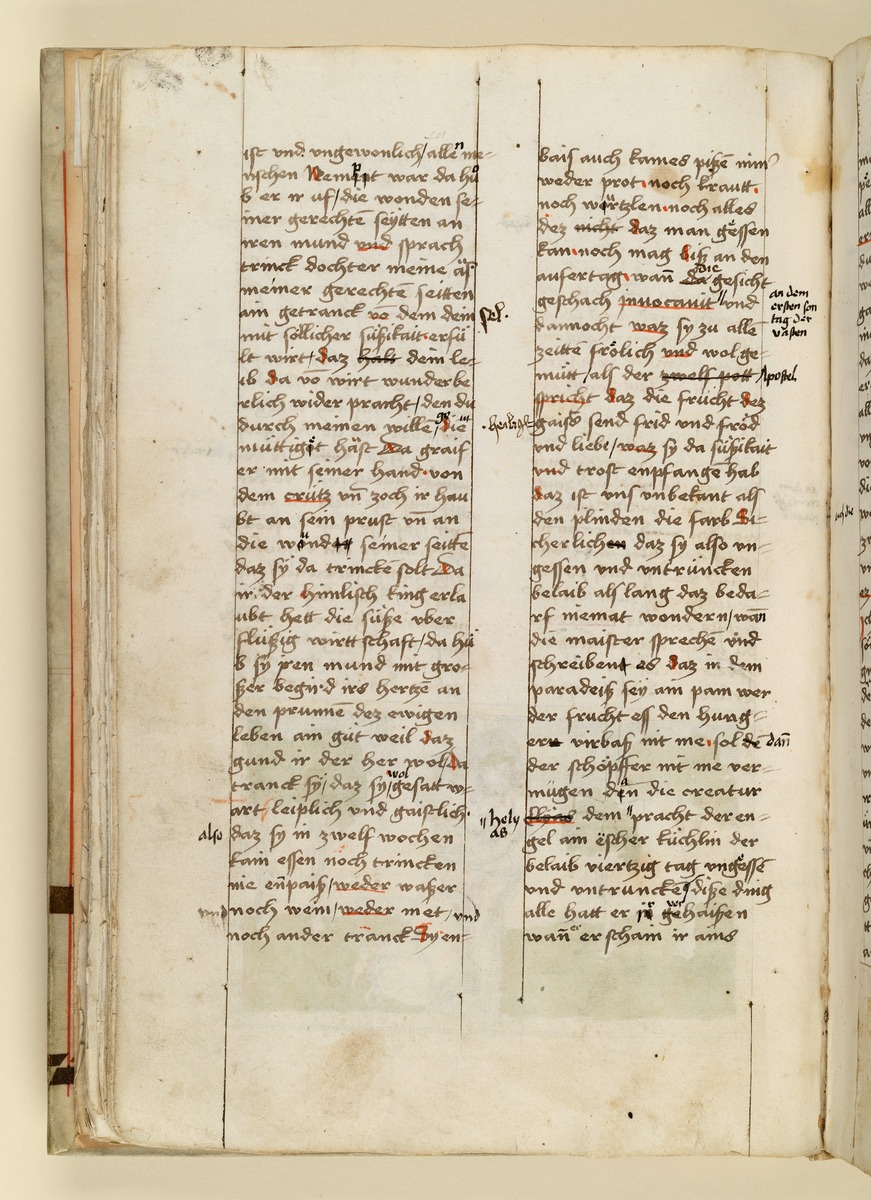 ist vnd vngewonlich / allen me-
nschen Nempt war da hů
b er ir uf / die wonden se-
iner gerechtē seÿtten an
iren mund vnd sprach
trinck dochter meine äs
meiner gerechtē seitten
ain getranck vō dem dein sel.
mit söllicher süßikait erfü
lt wirt / daz halt dein le-
ib da vō wirt wunderbe
rlich wider pracht / den du
durch meinen wille / die
müttigöt häst Da graif
er mit seiner hand von
dem crütz vñ zoch ir hau
bt an sein prust vñ an
die wönd seiner seittē
daz sÿ da trinckē solt Da
ir der himlisch king erla
ubt hett die süße vber
flüßig wirttschaft / da hů
b sÿ jren mund mit gro-
ßer begird irs hertzē an
den prunnē dez ewigen
leben ain güt weil daz
gund ir der her wol Da
tranck sÿ / daz sÿ wol gesatt w-
art / leiplich vnd gaistlich
also daz sÿ in zwelf wochen
kain essen noch trincken
nie enpaiß / weder waßer
vnd noch wein / weder met / vnd
noch ander tränck Sÿ en-
bais auch kaines pißē nim
weder prot noch krautt
noch würtzlen noch alles
dez nicht daz man gëssen
kan noch mag biß an den
aufertag wañ die gesicht
geschach jnuocauit vnd
an dem
ersten son
tag der
vasten
dannocht waz sÿ zu alle
zeittē frölich vnd wol ge-
mütt / als der zwelf pott Apostel
spricht daz die frücht dez
. heilagē gaists send frid vnd fröd
vnd liebe / waz sÿ da süßikait
vnd trost enpfangē hab
daz ist vns vnbekant als
den plinden die farb Si-
cherlichen daz sÿ also vn-
gessen vnd vntruncken
belaib als lang daz beda-
rf niemat wondern / wañ
die maister sprechē vnd
schreibent es daz in dem
paradeiß seÿ ain pam wer
der frucht ess den hung-
ern virbaß nit me sol dē dañ
der schöpffer nit me ver-
mügen dän die creatur
helyas elÿas dem pracht der en-
gel ain ëscher küchlin der
belaib viertzig tag vngëssē
vnd vntrunckē / diße ding
alle hatt er ir gehaißen
wañ er schain ir ains